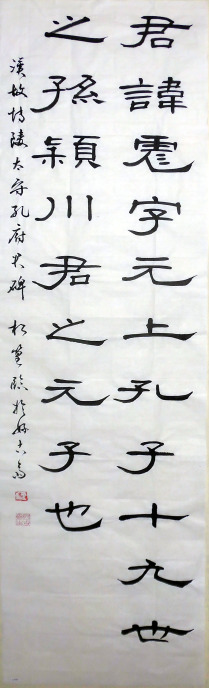 君諱彪字元上孔子十九世
之孫穎川君之元子也
漢故博陵太守孔府君碑 臨於